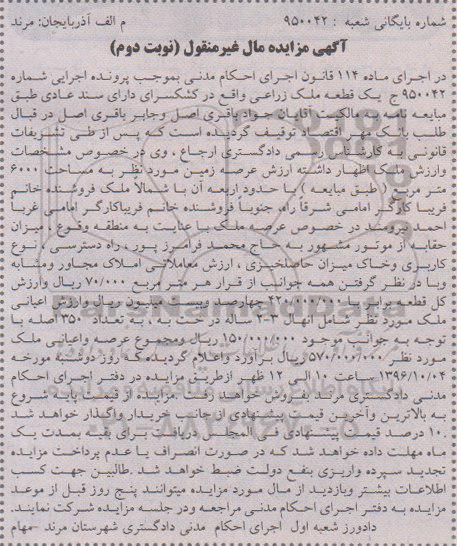 شماره بایگانی شعبه : ۹۵۰۰۴۲ م الف آذربایجان: مرند
آگهی مزایده مال غیرمنقول (نوبت دوم)
در اجرای ماده ۱۱۴ قانون اجرای احکام مدنی بموجب پرونده اجرایی شماره
۹۵۰۰۴۲ ج یک قطعه ملک زراعی واقع در کشکسرای دارای سند عادی طبق
مبایعه نامه به مالکیت آقایان جواد باقری اصل وجابر باقری اصل در قبال
طلب بانک مهر اقتصاد توقیف گردیده است که پس از طی تشریفات
قانونی به کارشناس رسمی دادگستری ارجاع ، وی در خصوص مشخصات
وارزش ملک اظهار داشته ارزش عرصه زمین مورد نظر به مساحت ۶۰۰۰
متر مربع ( طبق مبایعه ) با حدود اربعه آن با شمالاً ملک فروشنده خانم
فریبا کارگر امامی شرقاً راه جنوباً فروشنده خانم فریباکارگر امامی غربا
احمد برومند در خصوص عرصه ملک با عنایت به منطقه وقوع ، میزان
حقابه از موتور مشهور به حاج محمد فرامرز پور ، راه دسترسی ، نوع
کاربری وخاک میزان حاصلخیزی ، ارزش معاملاتی املاک مجاور ومشابه
وبا در نظر گرفتن همه جوانب از قرار هر متر مربع ۷۰/۰۰۰ ریال وارزش
کل قطعه برابر با ۴۲۰/۰۰۰/۰۰۰ چهارصد وبیست میلیون ریال وارزش اعیانی
ملک مورد نظر شامل انهال ۳-۲ ساله درخت به ، به تعداد ۳۵۰ اصله با
توجه به جوانب موجود ۱۵۰/۰۰۰/۰۰۰ ریال ومجموع عرصه واعیانی ملک
مورد نظر ۵۷۰/۰۰۰/۰۰۰ ریال برآورد واعلام گردیده که روز دوشنبه مورخه
۱۳۹۶/۱۰/۰۴ ساعت ۱۰ الی ۱۲ ظهر ازطریق مزایده در دفتر اجرای احکام
مدنی دادگستری مرند بفروش خواهد رفت. مزایده از قیمت پایه شروع
به بالاترین وآخرین قیمت پیشنهادی از جانب خریدار واگذار خواهد شد
۱۰ درصد قیمت پیشنهادی فی المجلس دریافت برای بقیه بمدت یک
ماه مهلت داده خواهد شد که در صورت انصراف یا عدم پرداخت مزایده
تجدید سپرده واریزی بنفع دولت ضبط خواهد شد .طالبین جهت کسب
اطلاعات بیشتر وبازدید از مال مورد مزایده میتوانند پنج روز قبل از موعد
مزایده به دفتر اجرای احکام مدنی مراجعه ودر جلسه مزایده شرکت نمایند.
دادورز شعبه اول اجرای احکام مدنی دادگستری شهرستان مرند –مهام
ParsNamadData
۰۲۱-۸۸۳۴۹۶۷۰-۵